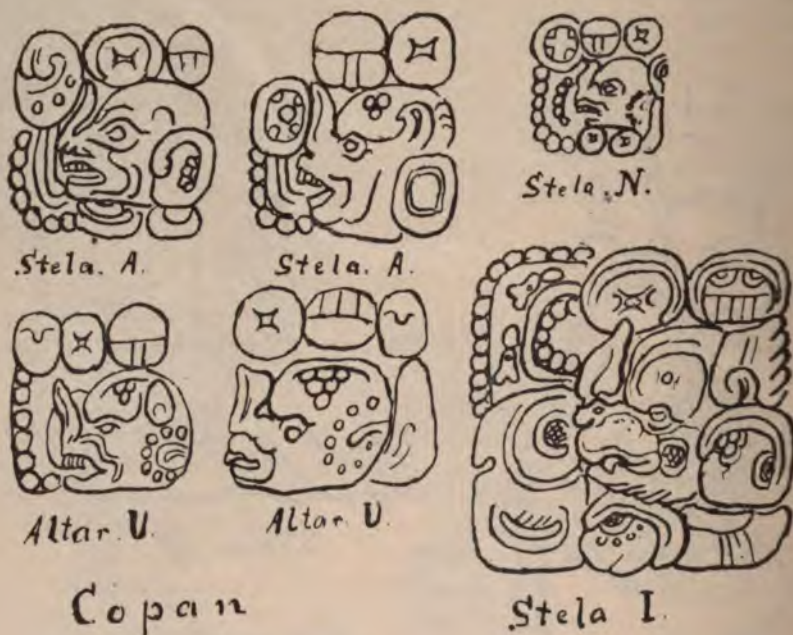 Stela. A.
Stela. A.
Stela. N.
Altar. U.
Altar. U.
Copan
Stela I.